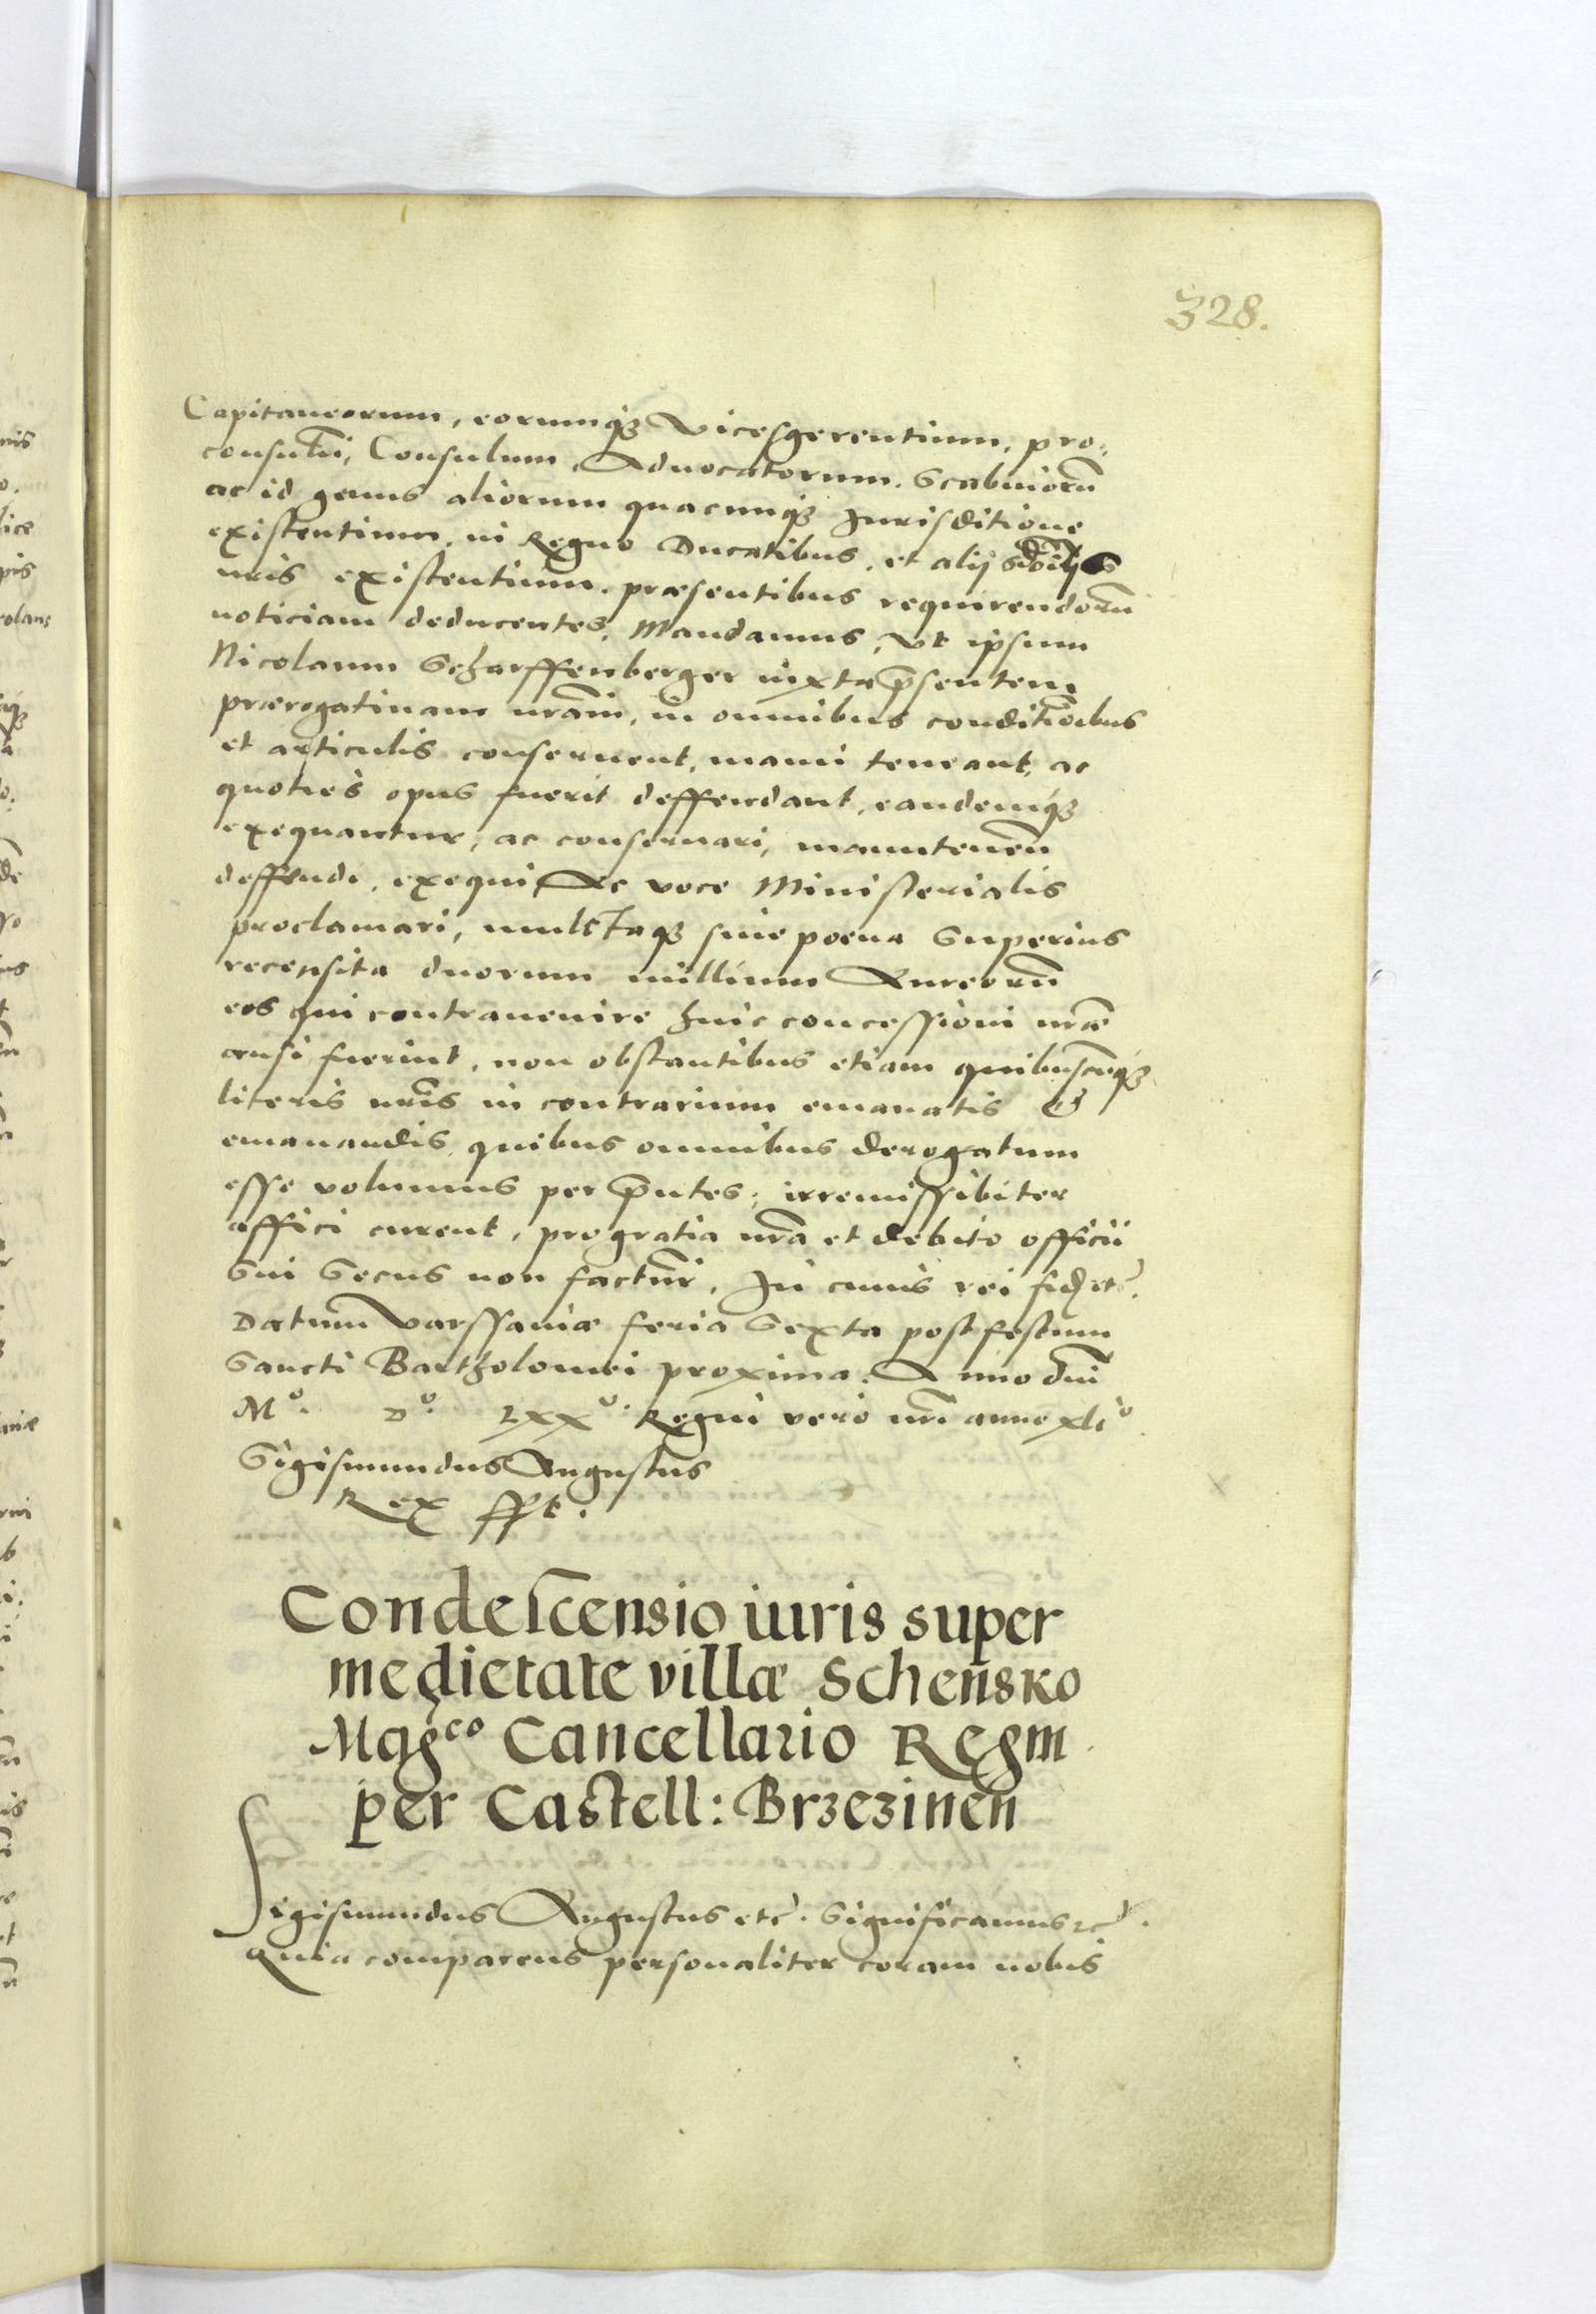 328.
Capitaneorum, eorumq3 Vicesgerentium, pro,,
consulũ, Consulum, Aduocatorum. Scabinorũ
ac id genus aliorum quacunq3 Jurisditione
existentium. in Regno Ducatibus. et alijs dõijs
nr̃is existentium. præsentibus requirendorũ
noticiam deducentes, Mandamus, Vt ipsum
Nicolaum Scharffenberger iuxta p̃sentem
prærogatiuam nr̃am, in omnibus conditiõibus
et articulis conseruent, manu teneant, ac
quoties opus fuerit deffendant, eandemq3
exequantur, ac conseruari, manuteneri
deffendi, exequi Ac voce Ministerialis
proclamari, mulctaq3 siue poena superius
recensita duorum millium Aureorũ
eos qui contrauenire huic concessioni nr̃æ
ausi fuerint, non obstantibus etiam quibuscũq3
literis nr̃is in contrarium emanatis &
emanandis, quibus omnibus derogatum
esse volumus per p̃ntes, irremissibiter
affici curent, pro gratia nr̃a et debito officii
sui Secus non facturi, In cuius rei fid etc̃.
Datum Varssauiæ feria Sexta post festum
Sancti Bartholomei proxima. Anno dñi
Mº. Dº. LXXº. Regni vero nr̃i anno xliº
Sigismundus Augustus
Rex sspt.
Condescensio iuris super
medietate villæ Scheñsko
Magco Cancellario Regni
per Castell: Brzezinen̄
Sigismundus Augustus etc̃. Significamus etc̃.
Quia comparens personaliter coram nobis